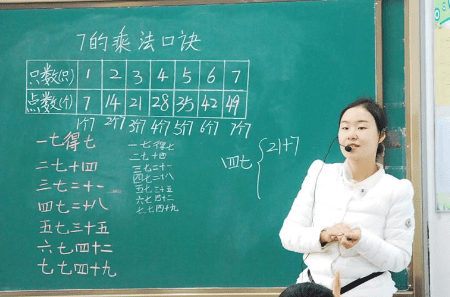 7的乘法口诀
只数(只) 1 2 3 4 5 6 7
点数(个) 7 14 21 28 35 42 49
1个7 2个7 3个7 4个7 5个7 6个7 7个7
一七得七
二七十四
三七二十一
四七二十八
五七三十五
六七四十二
七七四十九
一七得七
二七十四
三七二十一
四七二十八
五七三十五
六七四十二
七七四十九
四七 { 21+7